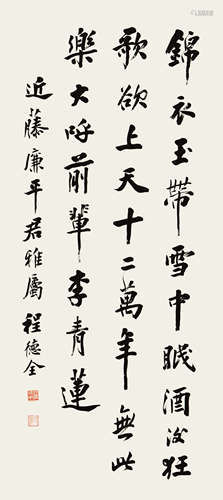 錦衣玉帶雪中眠酒後狂
歌欲上天十二萬年無此
樂大呼前輩李青蓮
近藤廉平君雅屬 程德全